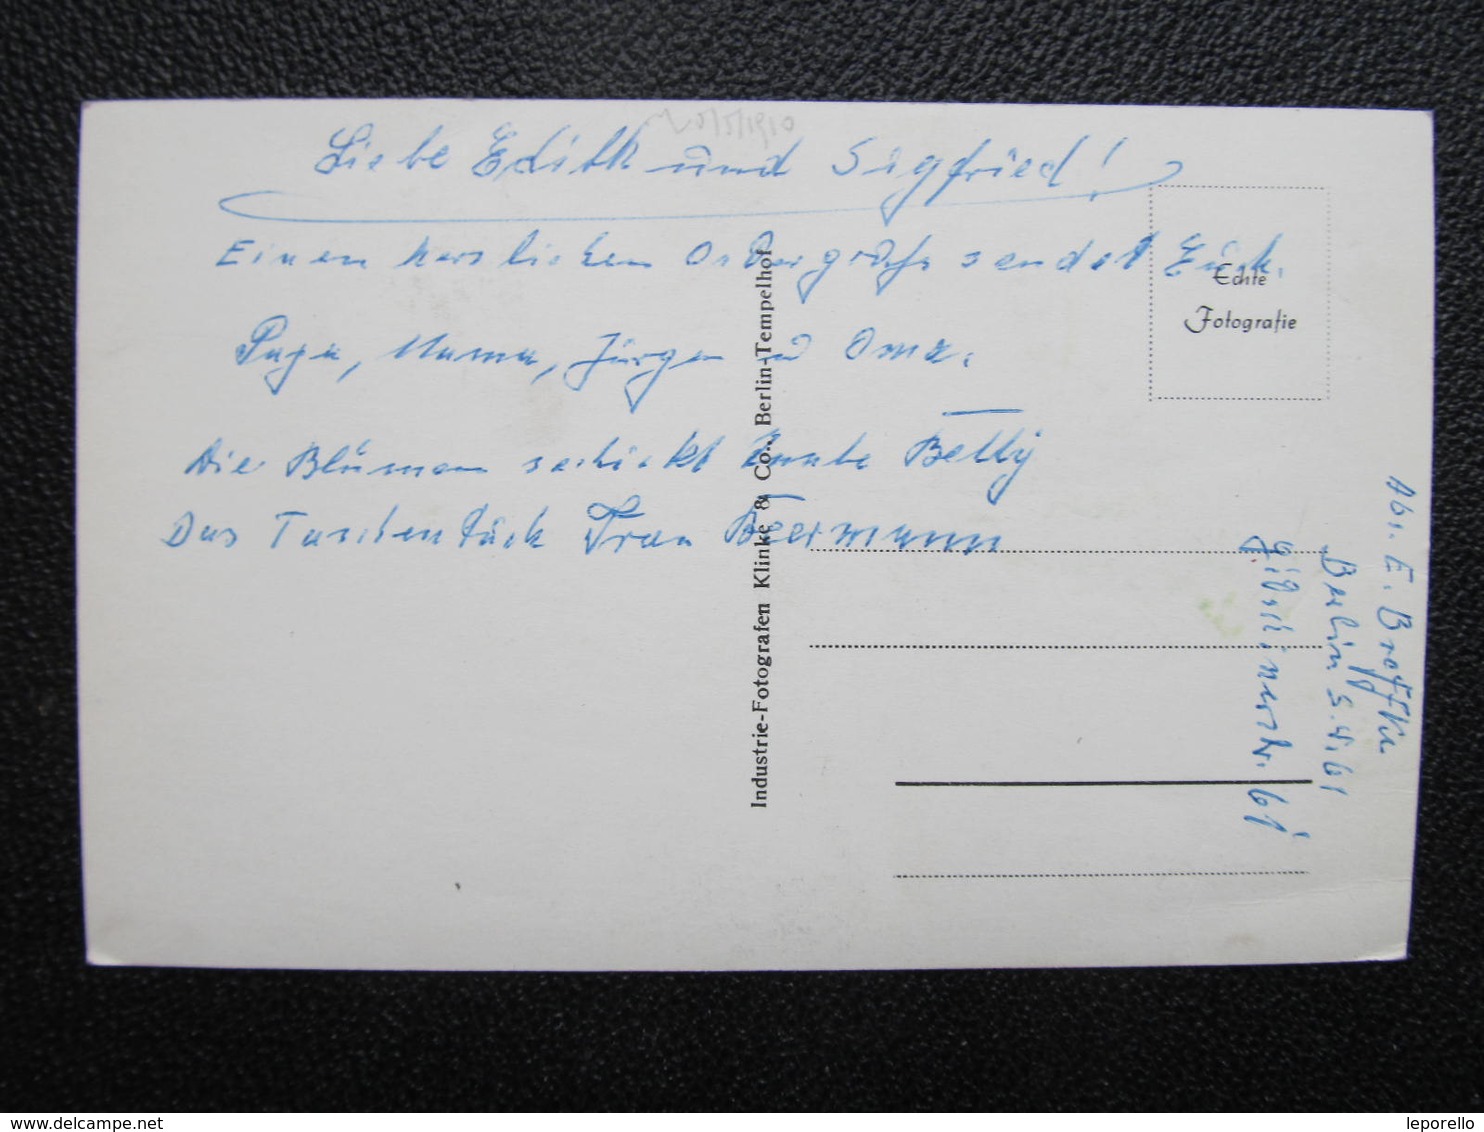 Liebe Edith und Siegfried!
Einen herzlichen Ostergruß sendet Euch.
Papa, Mama, Jürgen u Oma.
Die Blumen schickt Tante Betty
Das Taschentuch Frau Beermann
Echte
Fotografie
Industrie-Fotografen Klinke & Co., Berlin-Tempelhof
Abs. E. Broffka
Berlin S.W.61
Gitschinerstr. 61
delcampe.net
leporello